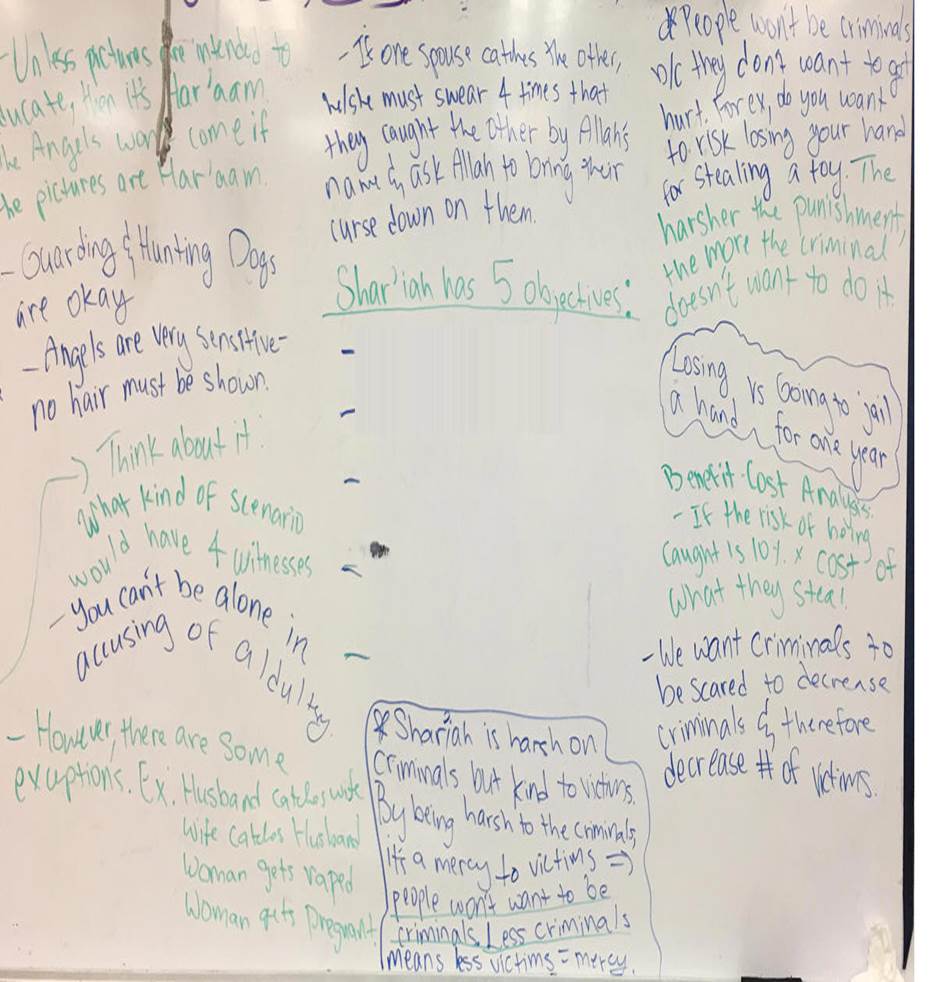 - Unless pictures are intended to
ducate, then it's Har'aam.
he Angels won't come if
he pictures are Har'aam.
- Guarding & Hunting Dogs
are okay
- Angels are very sensitive-
no hair must be shown.
Think about it:
What kind of scenario
would have 4 witnesses
- You can't be alone in
accusing of aldultery.
- However, there are some
exceptions. Ex. Husband catches wife
Wife catches Husband
Woman gets raped
Woman gets Pregnant
- If one spouse catches the other,
he/she must swear 4 times that
they caught the other by Allah's
name & ask Allah to bring their
curse down on them.
Shar'iah has 5 objectives:
-
-
-
-
-
* Shariah is harsh on
criminals but kind to victims.
By being harsh to the criminals,
it's a mercy to victims ⇒
people won't want to be
criminals. Less criminals
means less victims = mercy.
* People won't be criminals
b/c they don't want to get
hurt. For ex, do you want
to risk losing your hand
for stealing a toy. The
harsher the punishment,
the more the criminal
doesn't want to do it.
Losing vs Going to jail
a hand for one year
Benefit-Cost Analysis:
- If the risk of being
caught is 10% x cost of
what they steal
- We want criminals to
be scared to decrease
criminals & therefore
decrease # of victims.